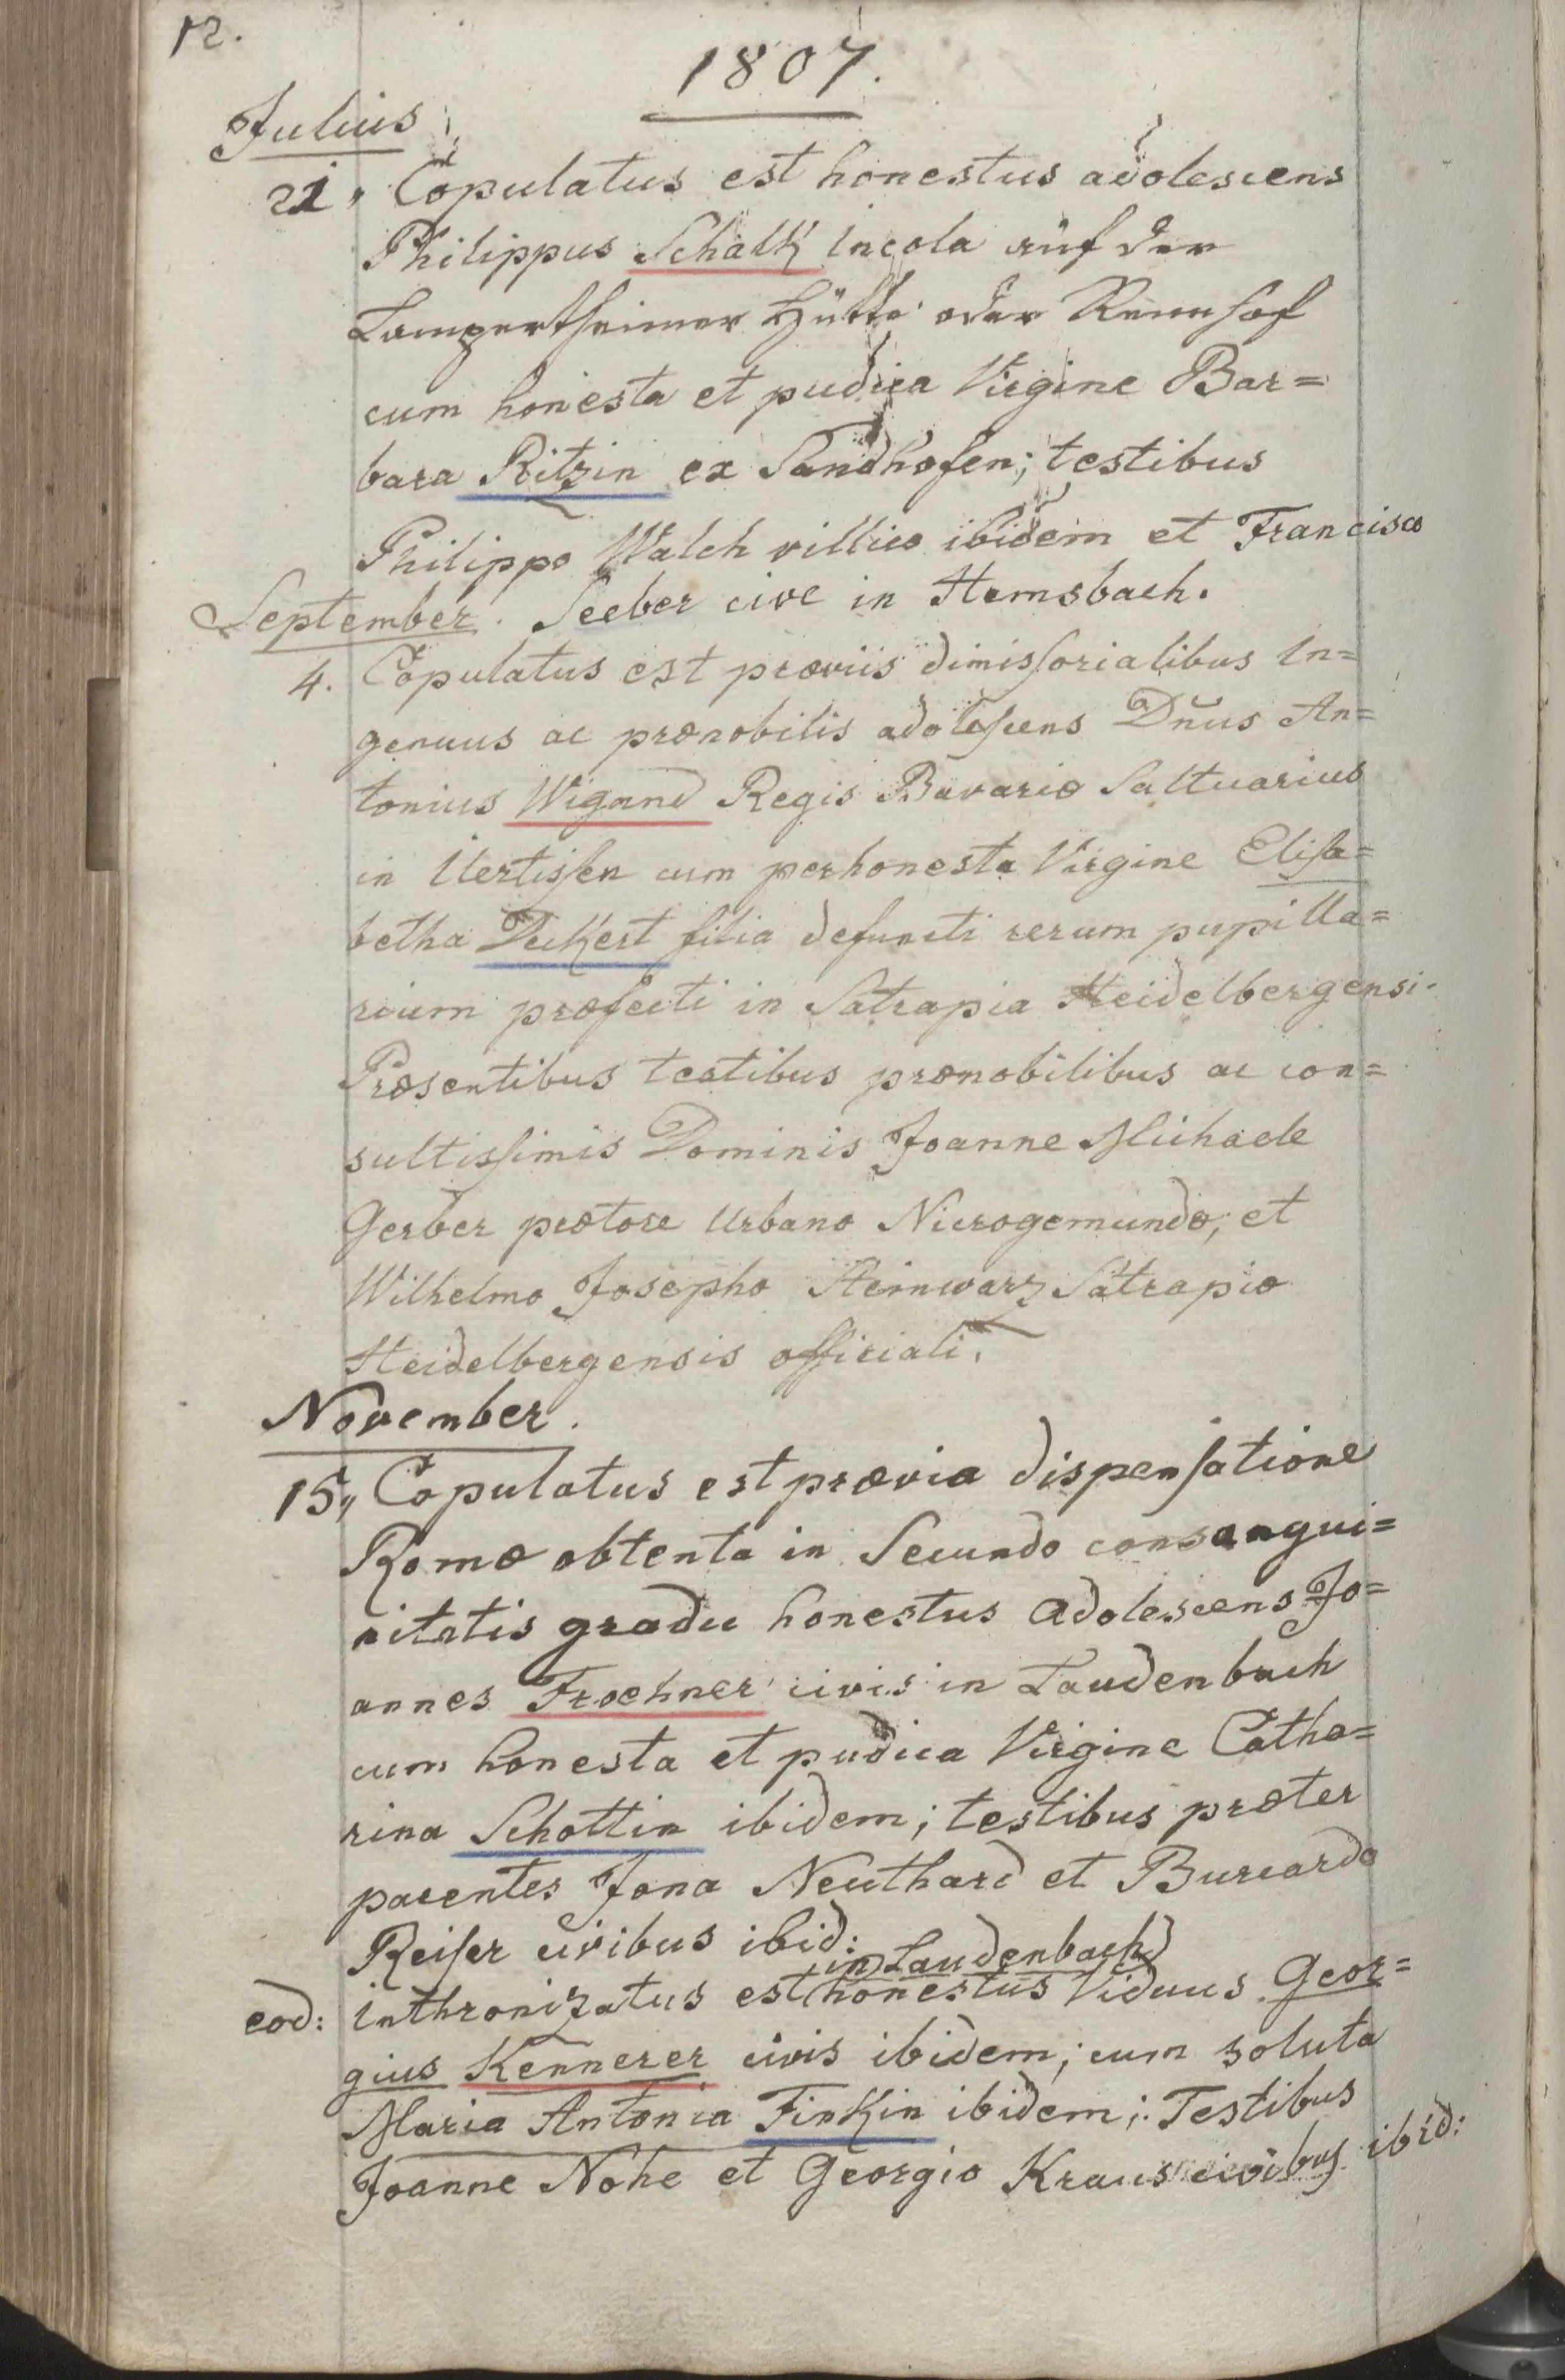 12.
1807.
Julius
21, Copulatus est honestus adolescens
Philippus Schalk incola auf der
Lampertheimer Hütte oder Rennhof
cum honesta et pudica Virgine Bar=
bara Ritzin ex Sandhofen; testibus
Philippo Walch villico ibidem et Francisco
September. Seeber cive in Hemsbach.
4. Copulatus est præviis dimissorialibus in=
genuus ac prænobilis adolescens Dn̄us An=
tonius Wigand Regis Bavariæ Saltuarius
in Uertissen cum perhonesta Virgine Elisa=
betha Deckert filia defuncti rerum pupilla=
rium præfecti in Satrapia Heidelbergensi.
Præsentibus testibus prænobilibus ac con=
sultissimis Dominis Joanne Michaele
Gerber prætore Urbano Nicrogemundæ, et
Wilhelmo Josepho Steinwarz Satrapiæ
Heidelbergensis officiali.
November.
15, Copulatus est prævia dispensatione
Romæ obtenta in Secundo consangui=
nitatis gradu honestus adolescens Jo=
annes Froehner civis in Laudenbach
cum honesta et pudica Virgine Catha=
rina Schottin ibidem; testibus præter
parentes Jona Neuthard et Burcardo
Reiser civibus ibid:
in Laudenbach
eod: inthronizatus est honestus Viduus Geor=
gius Kennerer civis ibidem; cum soluta
Maria Antonia Finkin ibidem; Testibus
Joanne Nohe et Georgio Kraus civibus ibid: